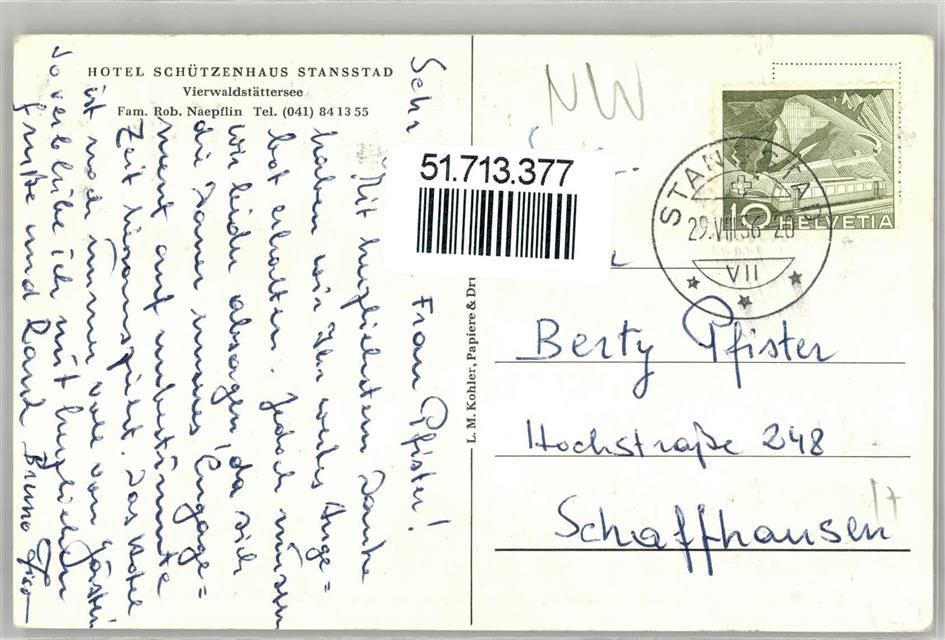 HOTEL SCHÜTZENHAUS STANSSTAD
Vierwaldstättersee
Fam. Rob. Naepflin Tel. (041) 84 13 55
Sehr Frau Pfister!
Mit herzlichstem Danke
haben wir Ihr wertes Ange=
bot erhalten. Jedoch müssen
wir leider absagen, da sich
die Dauer unseres Engage=
ment auf unbestimmte
Zeit hinausspielt. Das Hotel
ist noch immer voll von Gästen
So verbleibe ich mit herzlichen
Grüße und Dank Bruno
L. M. Kohler, Papiere & Dr
51.713.377
NW
STANSSTAD
29.VIII.56 - 20
VII
10 HELVETIA
Berty Pfister
Hochstraße 248
Schaffhausen
17